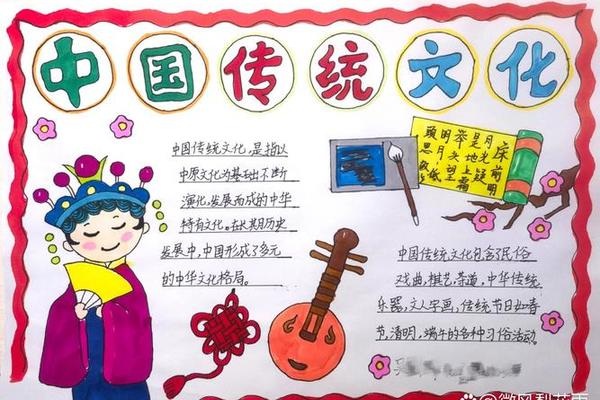 中国传统文化
中国传统文化,是指以
中原文化为基础不断
演化,发展而成的中华
特有文化。在长期历史
发展中,中国形成了多元
的中华文化格局。
床前
月光疑
是地上霜
举望
明月
思
中国传统文化包含了民俗
戏曲,棋艺,茶道,中华传统
乐器,文人字画,传统节日如春
节,清明,端午的各种习俗活动。